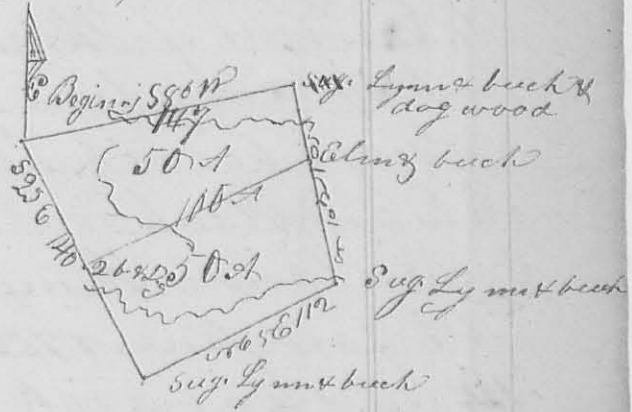 Begin,g S 80 W
147
Sug. Lynn & buch &
dog wood
50 A
Elm & buch
100 A
S 25 E 140
50 A
Sug Lynn & buch
N 65 E 112
Sug. Lynn & buch